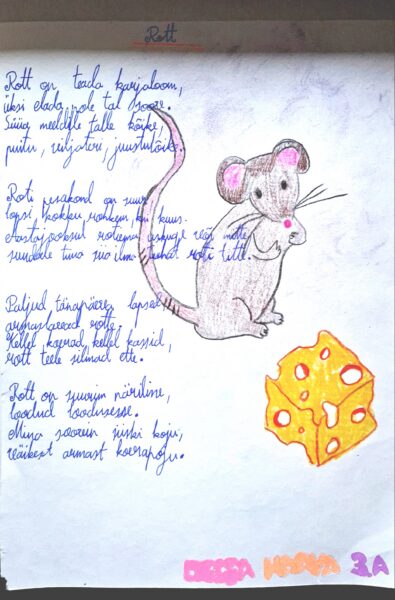 Rott
Rott on teada karjaloom,
üksi elada pole tal soov.
Süüa meeldib talle kõike,
puitu, viljateri, juustulõike.
Roti pesakond on suur
lapsi kokku rohkem kui kuus.
sundida tuua ilma tuhat rotti
Paljud tänapäeva lapsed,
armastavad rotte.
Kellel koerad, kellel kassid,
rott teele silmad ette.
Rott on suurim näriline,
loodud loodusesse.
Mina soovin siiski koju,
väikest armast koerapoju.
3.A